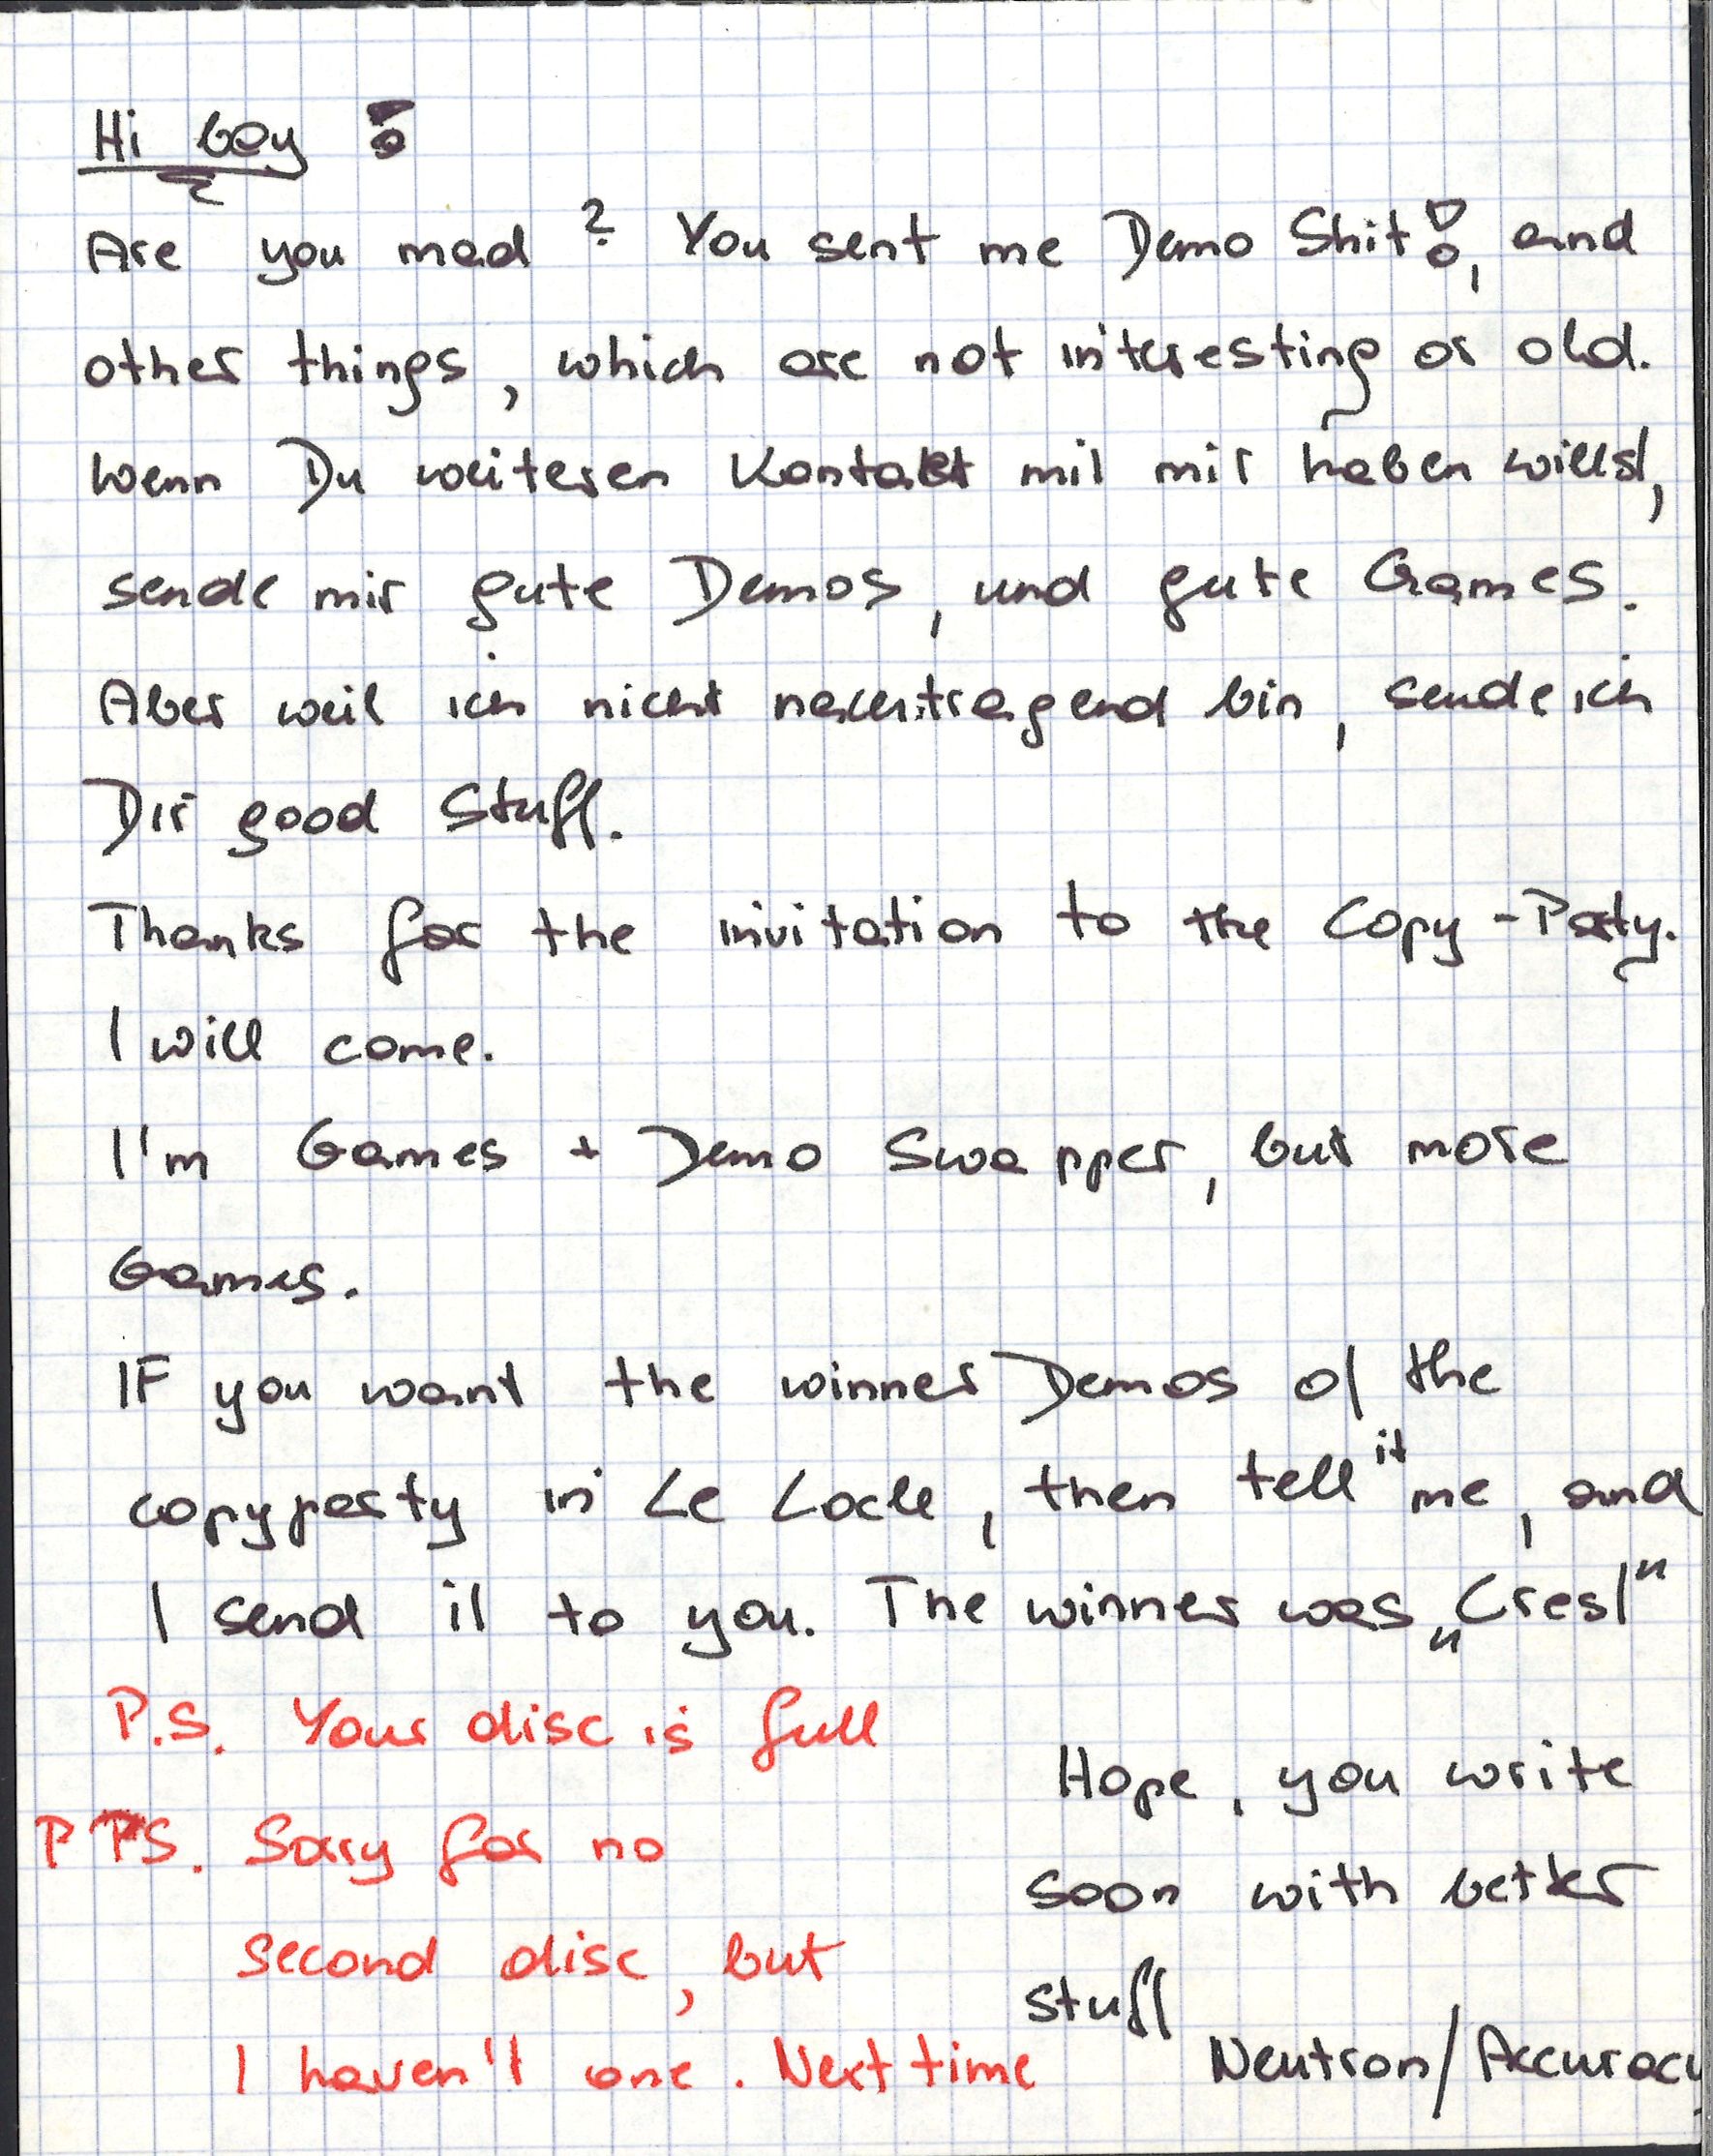 Hi boy !
Are you mad ? You sent me Demo Shit!, and
other things, which are not interesting or old.
Wenn Du weiteren Kontakt mit mir haben willst,
sende mir gute Demos, und gute Games.
Aber weil ich nicht nachtragend bin, sende ich
Dir good Stuff.
Thanks for the invitation to the Copy-Party.
I will come.
I'm Games + Demo Swapper, but more
Games.
IF you want the winner Demos of the
copyparty in Le Locle, then tell it me, and
I send it to you. The winner was „Crest"
P.S. Your disc is full
PPS. Sorry for no
second disc, but
I haven't one. Next time
Hope, you write
soon with better
stuff
Neutron/Accuracy